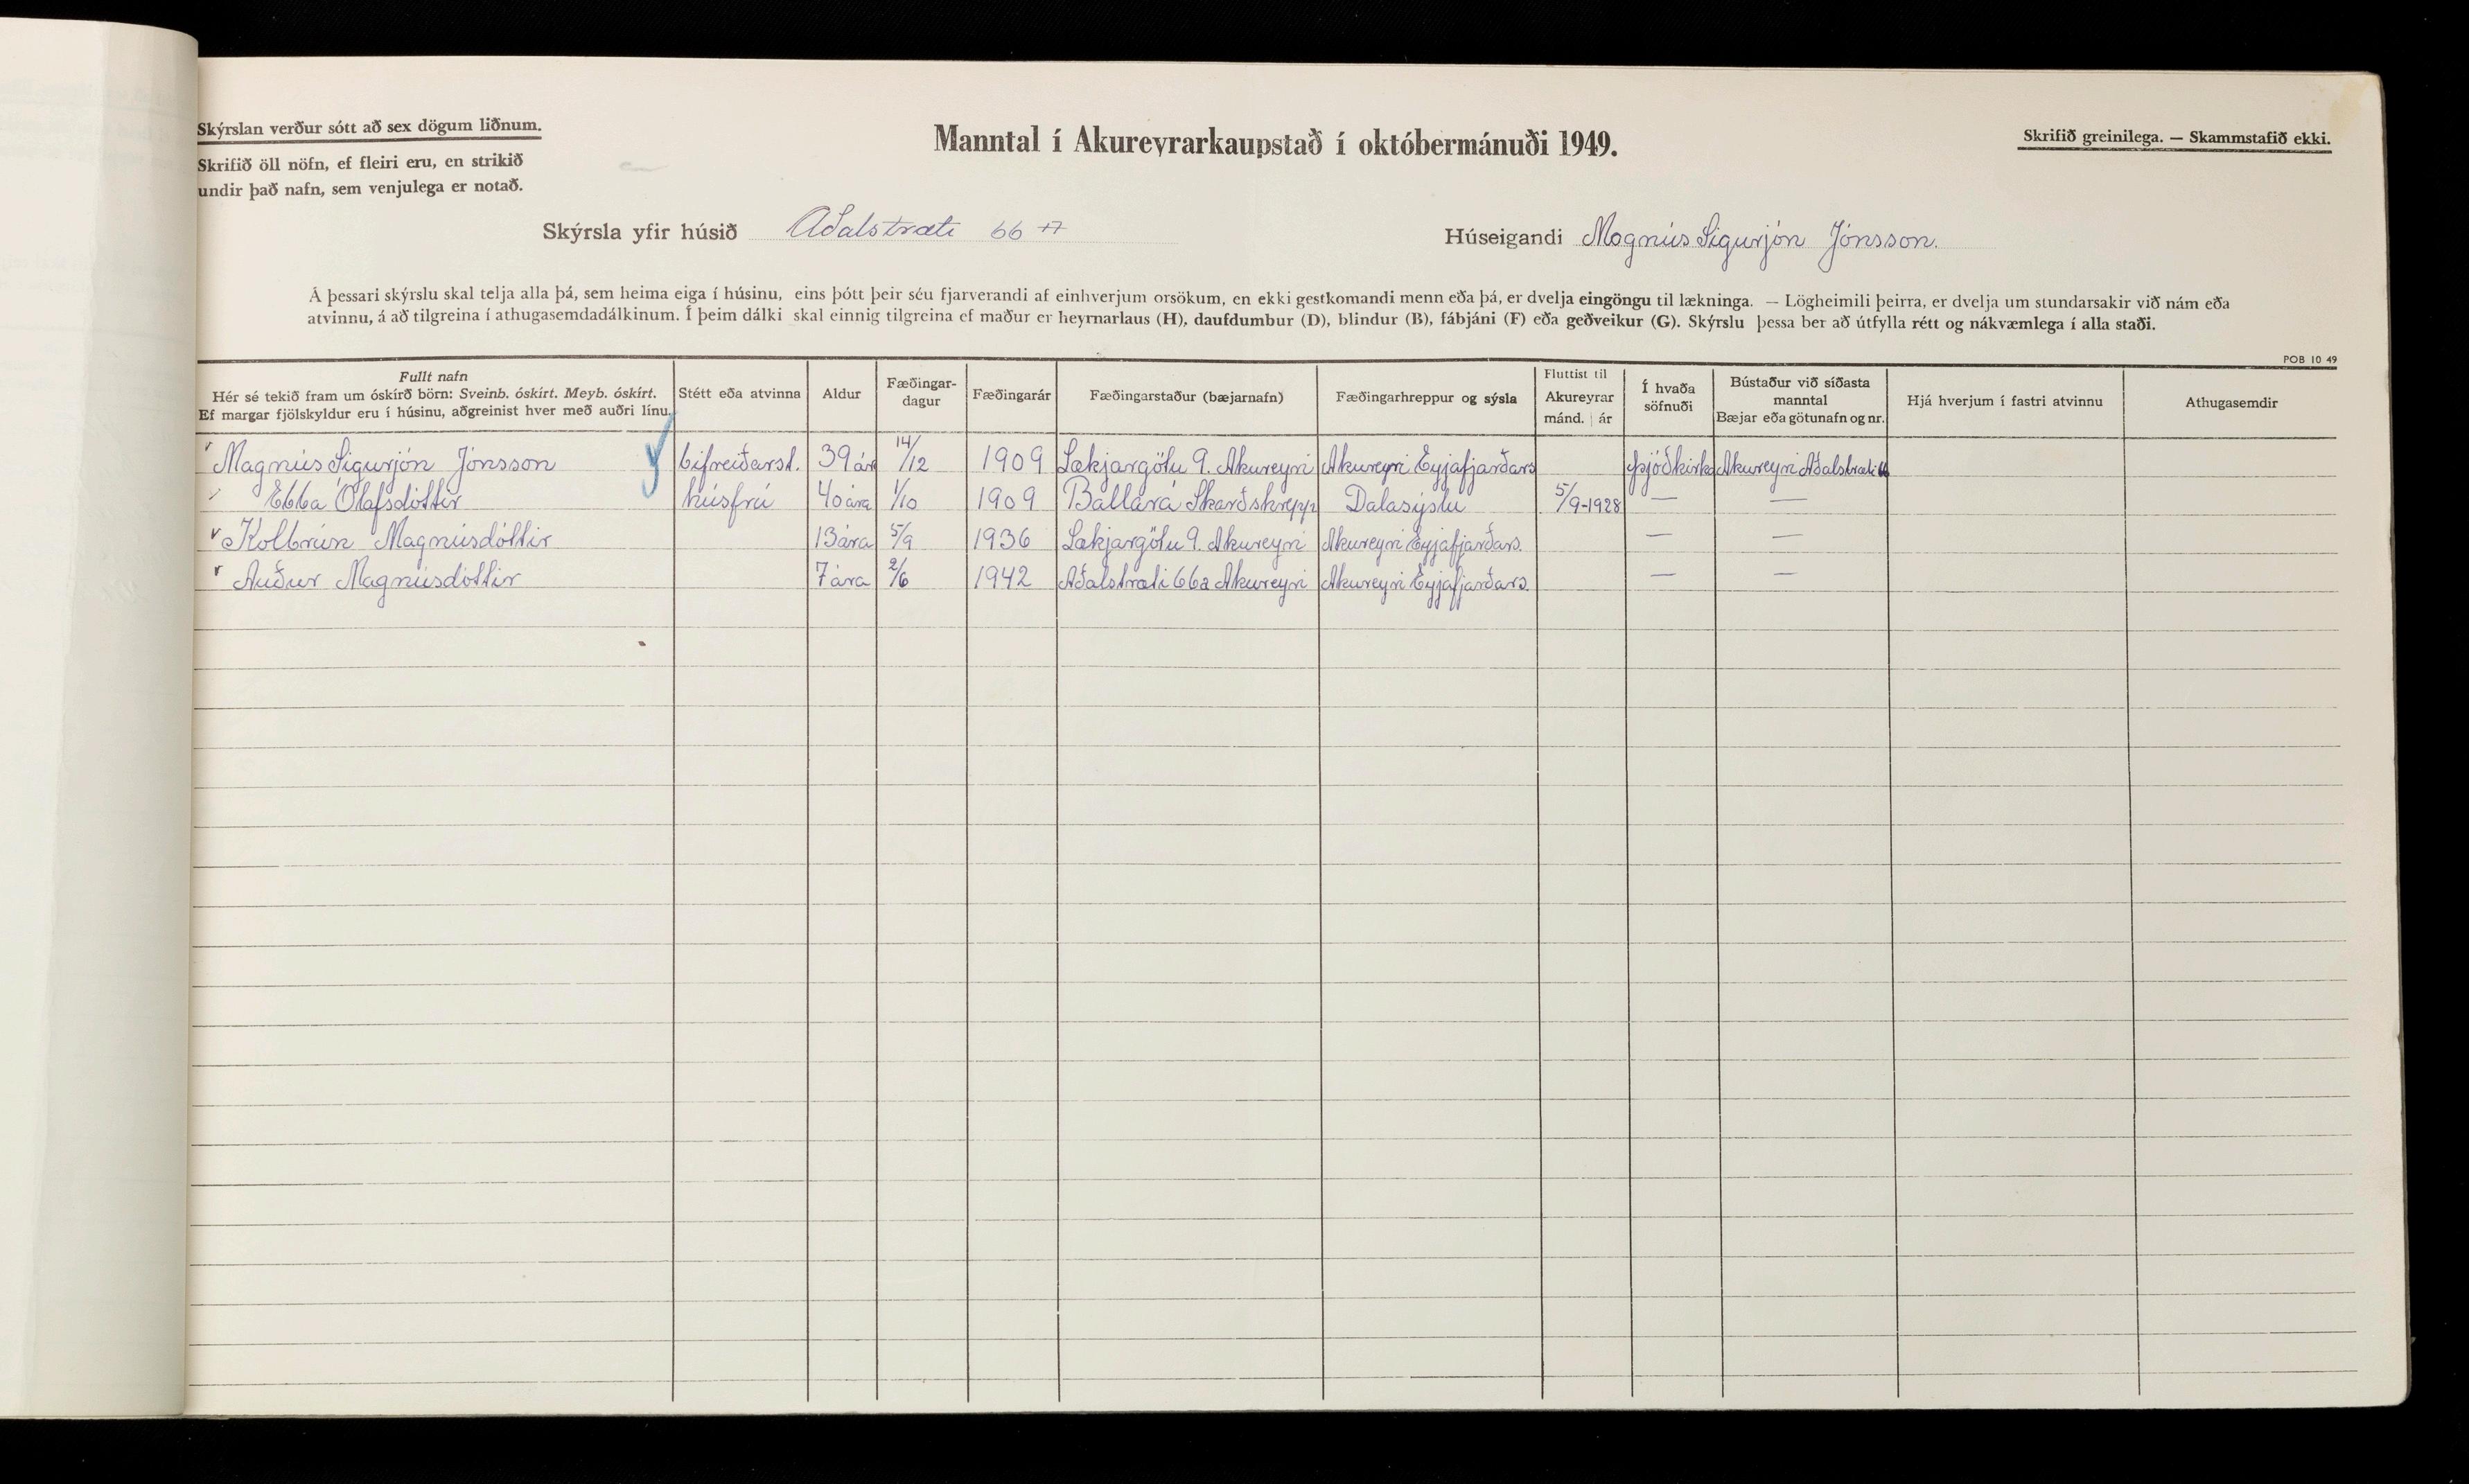 Skýrslan verður sótt að sex dögum liðnum.
Skrifið öll nöfn, ef fleiri eru, en strikið
undir það nafn, sem venjulega er notað.
Manntal í Akureyrarkaupstað í októbermánuði 1949.
Skrifið greinilega. — Skammstafið ekki.
Skýrsla yfir húsið Aðalstræti 66 A
Húseigandi Magnús Sigurjón Jónsson.
Á þessari skýrslu skal telja alla þá, sem heima eiga í húsinu, eins þótt þeir séu fjarverandi af einhverjum orsökum, en ekki gestkomandi menn eða þá, er dvelja eingöngu til lækninga. — Lögheimili þeirra, er dvelja um stundarsakir við nám eða
atvinnu, á að tilgreina í athugasemdadálkinum. Í þeim dálki skal einnig tilgreina ef maður er heyrnarlaus (H), daufdumbur (D), blindur (B), fábjáni (F) eða geðveikur (G). Skýrslu þessa ber að útfylla rétt og nákvæmlega í alla staði.
POB 10 49
Fullt nafn
Hér sé tekið fram um óskírð börn: Sveinb. óskírt. Meyb. óskírt.
Ef margar fjölskyldur eru í húsinu, aðgreinist hver með auðri línu.
Stétt eða atvinna
Aldur
Fæðingar-
dagur
Fæðingarár
Fæðingarstaður (bæjarnafn)
Fæðingarhreppur og sýsla
Fluttist til
Akureyrar
mánd. | ár
Í hvaða
söfnuði
Bústaður við síðasta
manntal
Bæjar eða götunafn og nr.
Hjá hverjum í fastri atvinnu
Athugasemdir
Magnús Sigurjón Jónsson bifreiðarst. 39 ár 14/12 1909 Lækjargötu 9. Akureyri Akureyri Eyjafjarðars Þjóðkirkj Akureyri Aðalstræti
Ebba Ólafsdóttir húsfrú 40 ára 1/10 1909 Ballará Skarðshrepp Dalasýslu 5/9-1928 — —
Kolbrún Magnúsdóttir 13 ára 5/9 1936 Lækjargötu 9. Akureyri Akureyri Eyjafjarðars. — —
Auður Magnúsdóttir 7 ára 2/6 1942 Aðalstræti 66a Akureyri Akureyri Eyjafjarðars. — —